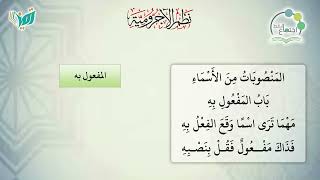 نظم الآجرومية
المفعول به
المَنْصُوبَاتُ مِنَ الأَسْمَاءِ
بَابُ المَفْعُولِ بِهِ
مَهْمَا تَرَى اسْمًا وَقَعَ الفِعْلُ بِهِ
فَذَاكَ مَفْعُولٌ فَقُلْ بِنَصْبِهِ